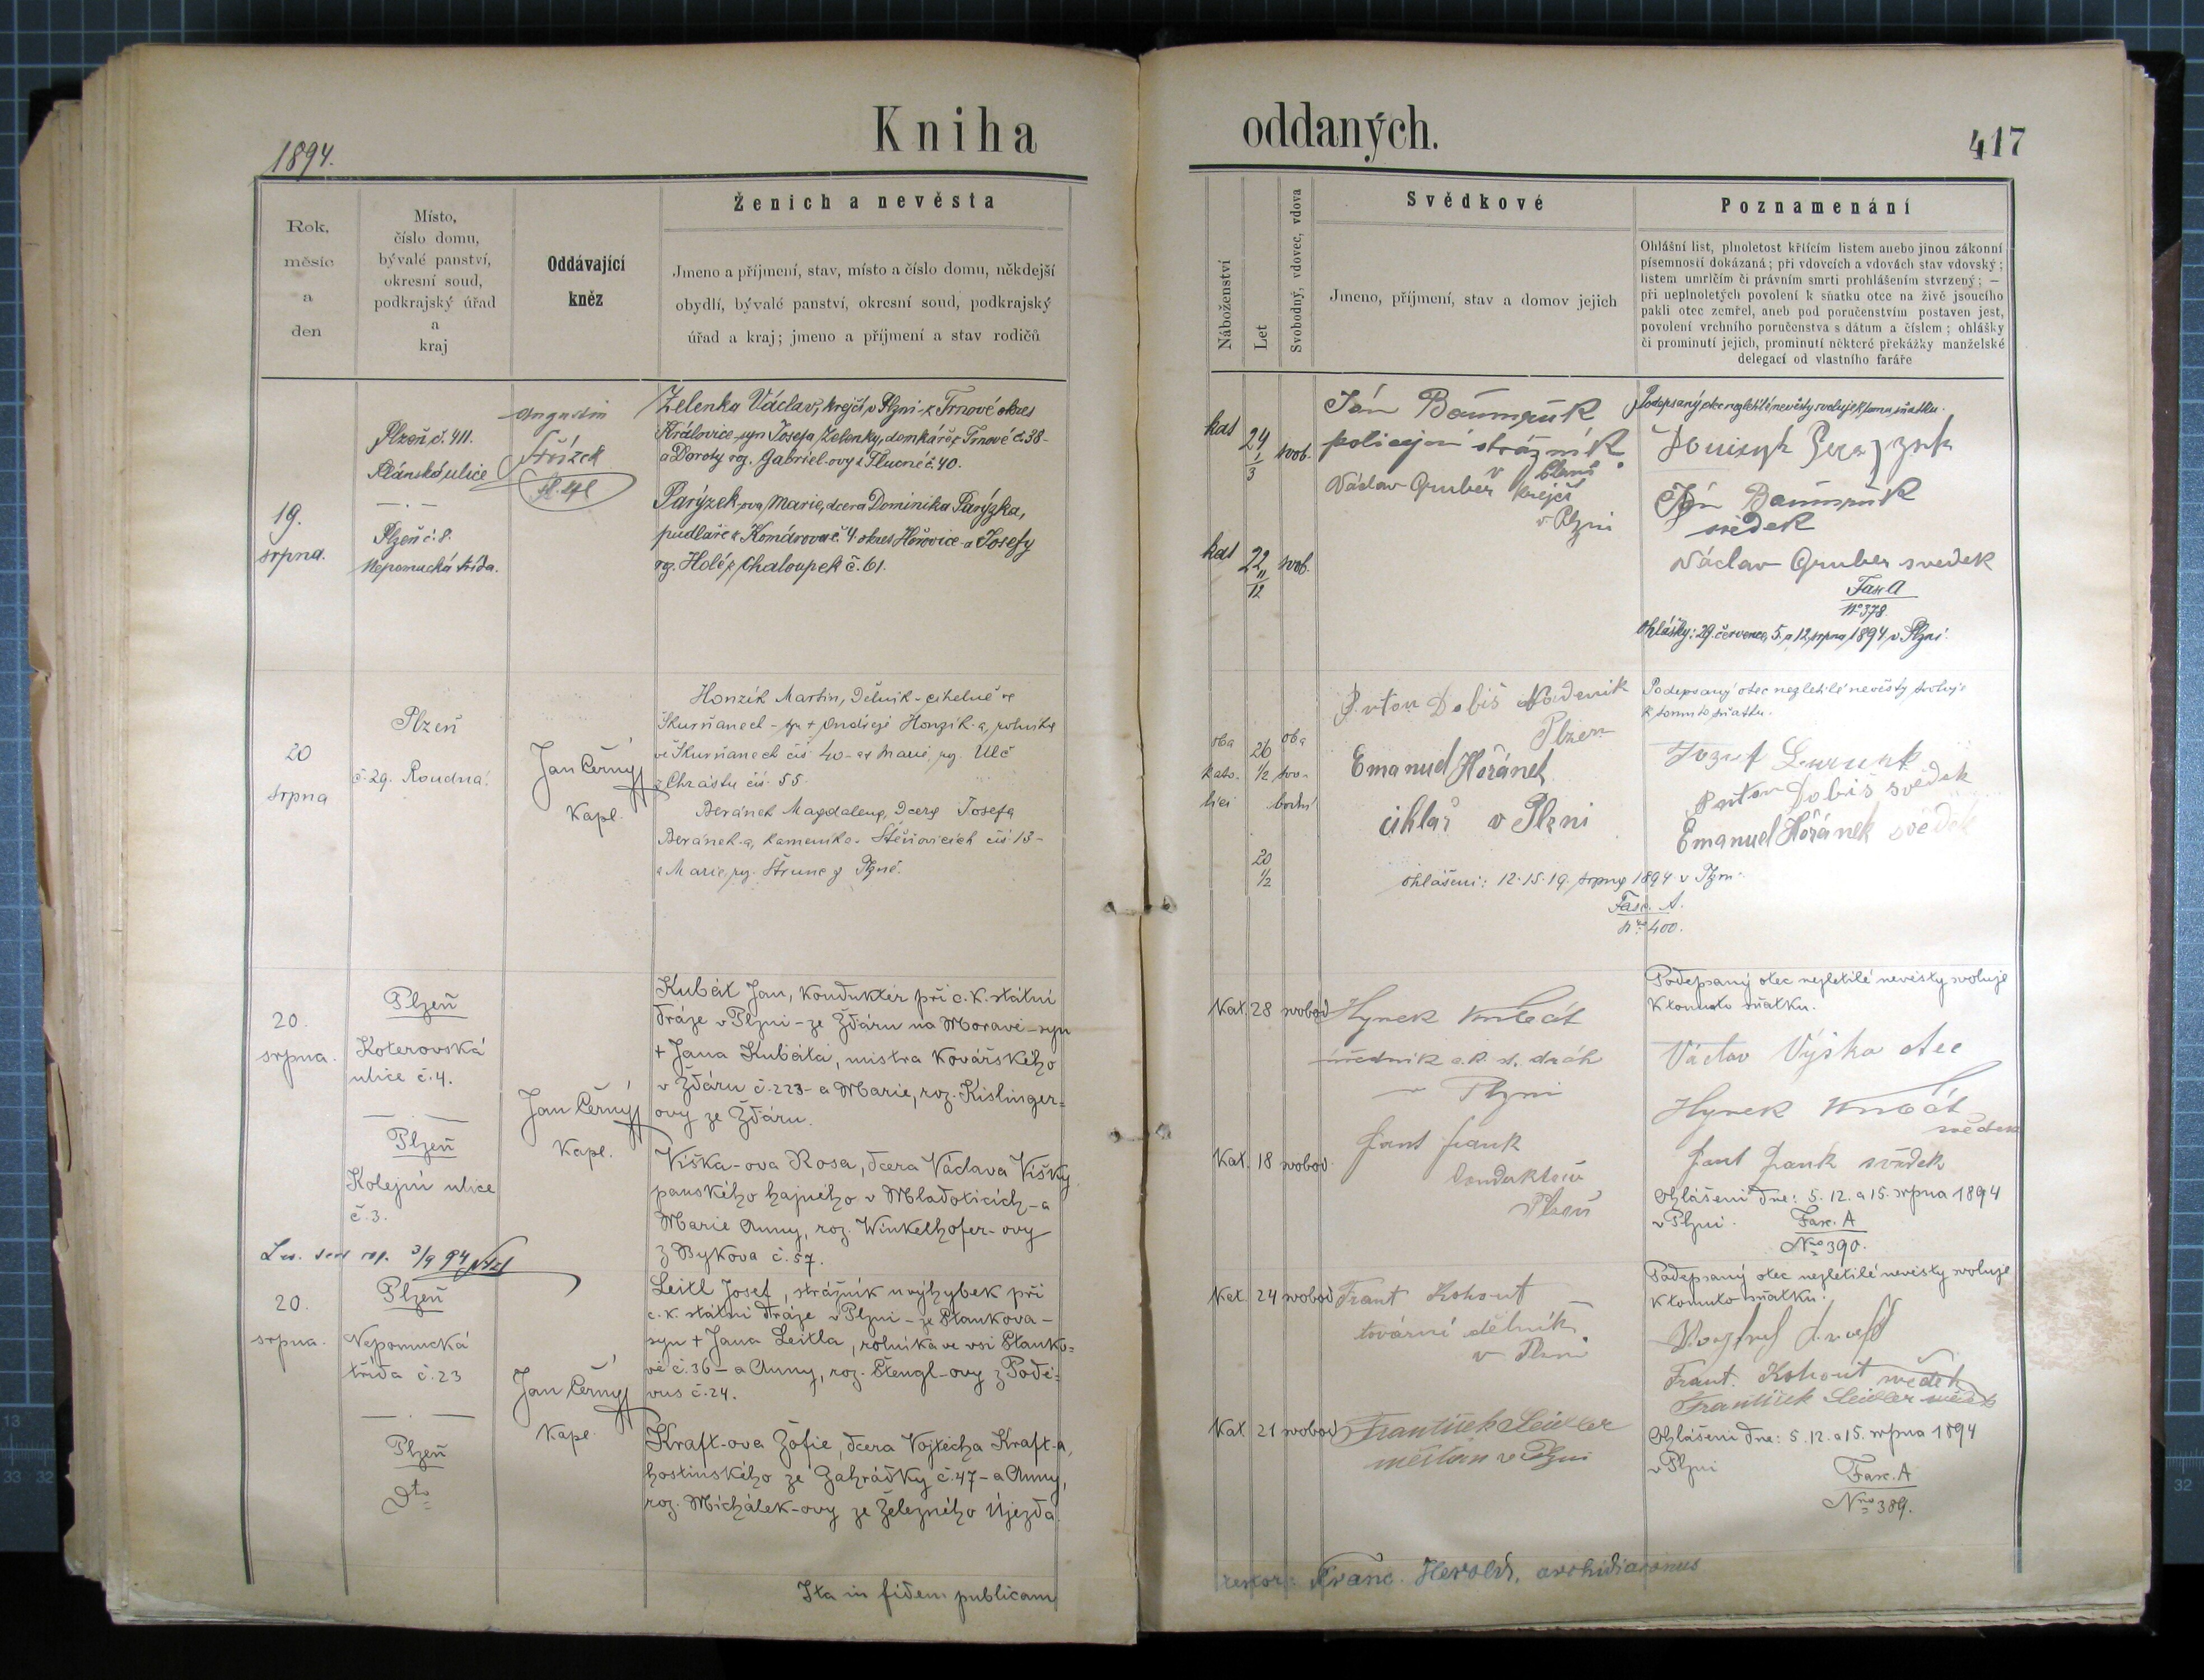 Kniha
oddaných.
1894.
417
Rok,
měsíc
a
den
Místo,
číslo domu,
bývalé panství,
okresní soud,
podkrajský úřad
a
kraj
Oddávající
kněz
Ženich a nevěsta
Jmeno a příjmení, stav, místo a číslo domu, někdejší
obydlí, bývalé panství, okresní soud, podkrajský
úřad a kraj; jmeno a příjmení a stav rodičů
Náboženství
Let
Svobodný, vdovec, vdova
Svědkové
Jmeno, příjmení, stav a domov jejich
Poznamenání
Ohlášní list, plnoletost křticím listem anebo jinou zákonní
písemností dokázaná; při vdovcích a vdovách stav vdovský;
listem umrlčím či právním smrti prohlášením stvrzený; —
při neplnoletých povolení k sňatku otce na živě jsoucího
pakli otec zemřel, aneb pod poručenstvím postaven jest,
povolení vrchního poručenstva s dátum a číslem; ohlášky
či prominutí jejich, prominutí některé překážky manželské
delegací od vlastního faráře
19.
srpna.
Plzeň, č. 411.
Plánská ulice
Plzeň č. 8.
Nepomucká třída.
Augustin
Zelenka Václav, krejčí v Plzni - z Trnové okres
Královice - syn Josefa Zelenky, domkáře z Trnové č. 38 -
a Doroty roz. Gabriel-ovy z Hlucné č. 40.
Parýzek-ova Marie, dcera Dominika Parýzka,
pudlaře z Komárova č. 4. okres Hořovice - a Josefy
roz. Holé z Chaloupek č. 61.
kat 24 1/3 svob.
kat 22 11/12 svob.
policejní strážník
Václav Gruber krejčí
v Plzni
Podepsaný otec nezletilé nevěsty svoluje k tomu sňatku.
svědek
Václav Gruber svedek
Fas. A
No 378.
Ohlášky: 29. července, 5. a 12. srpna 1894 v Plzni.
20
srpna
Plzeň
č. 29. Roudná.
Jan Černý
Kapl.
Honzík Martin, dělník - cihelně ve
Skurňanech - syn + Ondřeje Honzík-a, rolníka
ve Skurňanech čís 40 - a Marie, roz. Ulč
z Chrástu čís. 55.
Beránek Magdalena, dcera Josefa
Beránek-a, kameníka - Štěnovicích čís 13 -
a Marie, roz. Strunc z Plzně.
oba
kato-
líci
26
1/2
20
1/2
oba
svo-
bodní
Anton Dobiš
Plzen
Emanuel Hořánek
cihlař v Plzni
Podepsaný otec nezletilé nevěsty svoluje
k tomuto sňatku.
Anton Dobiš svědek
Emanuel Hořánek svědek
Ohlášení: 12. 15. 19. srpna 1894 v Plzni.
Fasc. A.
No 400.
20.
srpna.
Plzeň
Koterovská
ulice č. 4.
Plzeň
Kolejní ulice
č. 3.
Jan Černý
Kapl.
Kubát Jan, konduktér při c. k. státní
dráze v Plzni - ze Žďáru na Moravě - syn
+ Jana Kubáta, mistra kovářského
v Žďáru č. 223 - a Marie, roz. Kislinger-
ovy ze Žďáru.
Viška-ova Rosa, dcera Václava Višky
panského hajného v Mladoticích - a
Marie Anny, roz. Winkelhofer-ovy
z Bykova č. 57.
Kat. 28 svobod
Kat. 18 svobod.
Hynek Kubát
úředník c. k. st. dráh
v Plzni
Plzeň
Podepsaný otec nezletilé nevěsty svoluje
k tomuto sňatku.
Václav Výška otec
Hynek Kubát
svědek
svědek
Ohlášeni dne: 5. 12. a 15. srpna 1894
v Plzni.
Fasc. A
Nro 390.
3/9 94
20.
srpna.
Plzeň
Nepomucká
třída č. 23
Plzeň
Dto
Jan Černý
Kapl.
Leitl Josef, strážník u výhybek při
c. k. státní dráze v Plzni - ze Staňkova -
syn + Jana Leitla, rolníka ve vsi Staňko-
vě č. 36 - a Anny, roz. Stengl-ovy z Podě-
vus č. 24.
Kraft-ova Žofie, dcera Vojtěcha Kraft-a,
hostinského ze Zahrádky č. 47 - a Anny,
roz. Michálek-ovy ze Železného Újezda.
Kat. 24 svobod
Kat. 21 svobod
Frant Kohout
tovární dělník
v Plzni
František Seidler
měšťan v Plzni
Podepsaný otec nezletilé nevěsty svoluje
k tomuto sňatku.
Frant. Kohout svědek
František Seidler svědek
Ohlášeni dne: 5. 12. a 15. srpna 1894
v Plzni
Fasc. A
Nro 389.
Ita in fidem publicam
Franc. Herold, archidiaconus